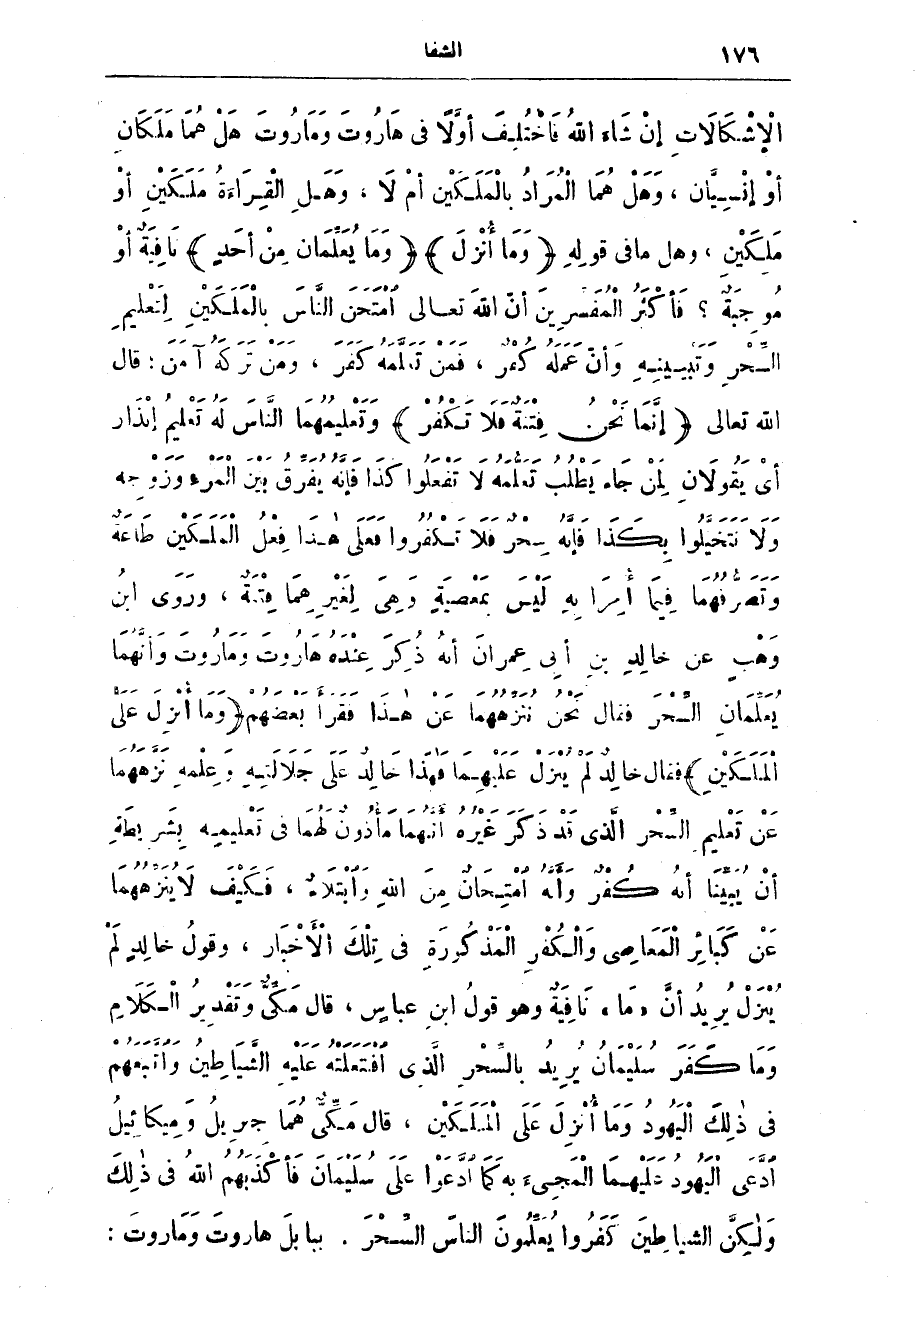 ١٧٦
الشفا
الْإِشْكَالَاتِ إِنْ شَاءَ اللهُ فَاخْتُلِفَ أَوَّلًا فِى هَارُوتَ وَمَارُوتَ هَلْ هُمَا مَلَكَانِ
أَوْ إِنْسِيَّانِ ، وَهَلْ هُمَا الْمُرَادُ بِالْمَلَكَيْنِ أَمْ لَا ، وَهَلِ الْقِرَاءَةُ مَلَكَيْنِ أَوْ
مَلِكَيْنِ ، وهل ما فى قولِهِ ﴿ وَمَا أُنْزِلَ ﴾ ﴿ وَمَا يُعَلِّمَانِ مِنْ أَحَدٍ ﴾ نَافِيَةٌ أَوْ
مُوجِبَةٌ ؟ فَأَكْثَرُ الْمُفَسِّرِينَ أَنَّ اللهَ تعالى امْتَحَنَ النَّاسَ بِالْمَلَكَيْنِ لِتَعْلِيمِ
السِّحْرِ وَتَبْيِينِهِ وَأَنَّ عَمَلَهُ كُفْرٌ ، فَمَنْ تَعَلَّمَهُ كَفَرَ ، وَمَنْ تَرَكَهُ آمَنَ : قال
الله تعالى ﴿ إِنَّمَا نَحْنُ فِتْنَةٌ فَلَا تَكْفُرْ ﴾ وَتَعْلِيمُهُمَا النَّاسَ لَهُ تَعْلِيمُ إِنْذَارٍ
أَىْ يَقُولَانِ لِمَنْ جَاءَ يَطْلُبُ تَعَلُّمَهُ لَا تَفْعَلُوا كَذَا فَإِنَّهُ يُفَرِّقُ بَيْنَ الْمَرْءِ وَزَوْجِهِ
وَلَا تَتَخَيَّلُوا بِكَذَا فَإِنَّهُ سِحْرٌ فَلَا تَكْفُرُوا فَعَلَى هٰذَا فِعْلُ الْمَلَكَيْنِ طَاعَةٌ
وَتَصَرُّفُهُمَا فِيمَا أُمِرَا بِهِ لَيْسَ بِمَعْصِيَةٍ وَهِىَ لِغَيْرِهِمَا فِتْنَةٌ ، وَرَوَى ابنُ
وَهْبٍ عن خالدِ بنِ أبى عِمرانَ أنهُ ذُكِرَ عِنْدَهُ هَارُوتَ وَمَارُوتَ وَأَنَّهُمَا
يُعَلِّمَانِ السِّحْرَ فقال نَحْنُ نُنَزِّهُهُمَا عَنْ هٰذَا فَقَرَأَ بَعْضُهُمْ ﴿ وَمَا أُنْزِلَ عَلَى
الْمَلَكَيْنِ ﴾ فقال خالدٌ لَمْ يُنْزَلْ عَلَيْهِمَا فَهٰذَا خَالِدٌ عَلَى جَلَالَتِهِ وَعِلْمِهِ نَزَّهَهُمَا
عَنْ تَعْلِيمِ السِّحْرِ الَّذِى قَدْ ذَكَرَ غَيْرُهُ أَنَّهُمَا مَأْذُونٌ لَهُمَا فِى تَعْلِيمِهِ بِشَرِيطَةِ
أَنْ يُبَيِّنَا أَنهُ كُفْرٌ وَأَنَّهُ امْتِحَانٌ مِنَ اللهِ وَابْتِلَاءٌ ، فَكَيْفَ لَا يُنَزِّهُهُمَا
عَنْ كَبَائِرِ الْمَعَاصِى وَالْكُفْرِ الْمَذْكُورَةِ فى تِلْكَ الْأَخْبَارِ ، وقولُ خالِدٍ لَمْ
يُنْزَلْ يُرِيدُ أَنَّ «مَا» نَافِيَةٌ وهو قولُ ابنِ عباسٍ ، قال مَكِّىٌّ وَتَقْدِيرُ الْكَلَامِ
وَمَا كَفَرَ سُلَيْمَانُ يُرِيدُ بِالسِّحْرِ الَّذِى افْتَعَلَتْهُ عَلَيْهِ الشَّيَاطِينُ وَاتَّبَعَهُمْ
فى ذٰلِكَ الْيَهُودُ وَمَا أُنْزِلَ عَلَى الْمَلَكَيْنِ ، قال مَكِّىٌّ هُمَا جِبْرِيلُ وَمِيكَائِيلُ
ادَّعَى الْيَهُودُ عَلَيْهِمَا الْمَجِىءَ بِهِ كَمَا ادَّعَوْا عَلَى سُلَيْمَانَ فَأَكْذَبَهُمُ اللهُ فى ذٰلِكَ
وَلٰكِنَّ الشياطِينَ كَفَرُوا يُعَلِّمُونَ الناسَ السِّحْرَ . ببابلَ هاروتَ وَمَاروتَ :